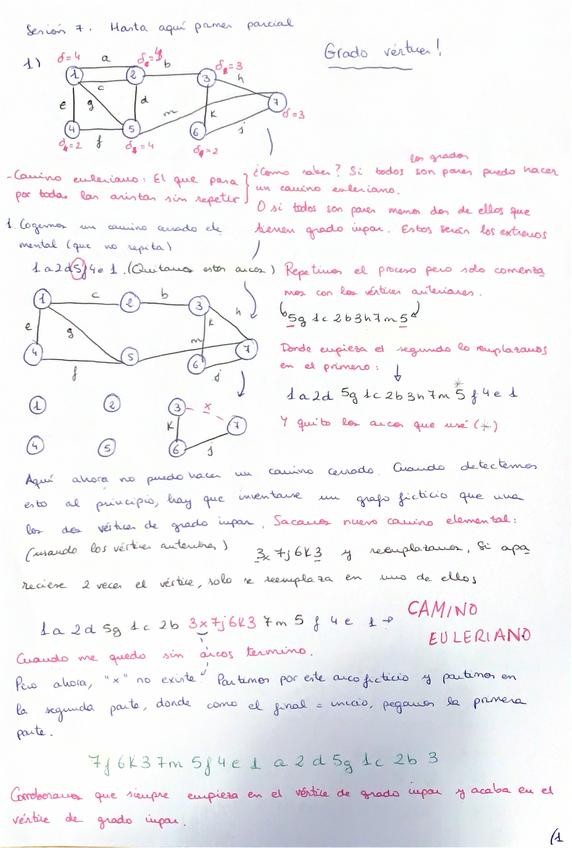 Sesión 7. Hasta aquí primer parcial
Grado vértices!
1)
δ=4 a δ=4 b δ=3 h
1 2 3 7
c
e g d m k δ=3
4 5 6
f j
δ=2 δ=4 δ=2
- Camino euleriano: El que pasa
por todas las aristas sin repetir
¿Como saber? Si todos los grados son pares puedo hacer
un camino euleriano.
O si todos son pares menos dos de ellos que
tienen grado impar. Estos serán los extremos
1. Cogemos un camino cerrado ele-
mental (que no repita)
1 a 2 d 5 f 4 e 1. (Quitamos estos arcos)
Repetimos el proceso pero solo comenza
mos con los vértices anteriores.
5g 1c 2b 3h 7m 5
Donde empieza el segundo lo reemplazamos
en el primero:
1 a 2 d 5g 1c 2b 3h 7m 5 f 4 e 1
Y quito los arcos que usé (*)
1 c 2 b 3 h
e g m k 7
4 f 5 6 j
1 2 3 x 7
4 5 k 6 j
Aquí ahora no puedo hacer un camino cerrado. Cuando detectemos
esto al principio, hay que inventarse un grafo ficticio que una
los dos vértices de grado impar. Sacamos nuevo camino elemental:
(usando los vértices anteriores) 3x 7j 6k 3 y reemplazamos. Si apa
reciese 2 veces el vértice, solo se reemplaza en uno de ellos
1 a 2 d 5g 1c 2b 3x7j6k3 7m 5 f 4 e 1 → CAMINO
EULERIANO
Cuando me quedo sin arcos termino.
Pero ahora, "x" no existe Partimos por este arco ficticio y partimos en
la segunda parte, donde como el final = inicio, pegamos la primera
parte.
7j 6k 3 7m 5f 4e 1 a 2 d 5g 1c 2b 3
Corroboramos que siempre empieza en el vértice de grado impar y acaba en el
vértice de grado impar.
(1